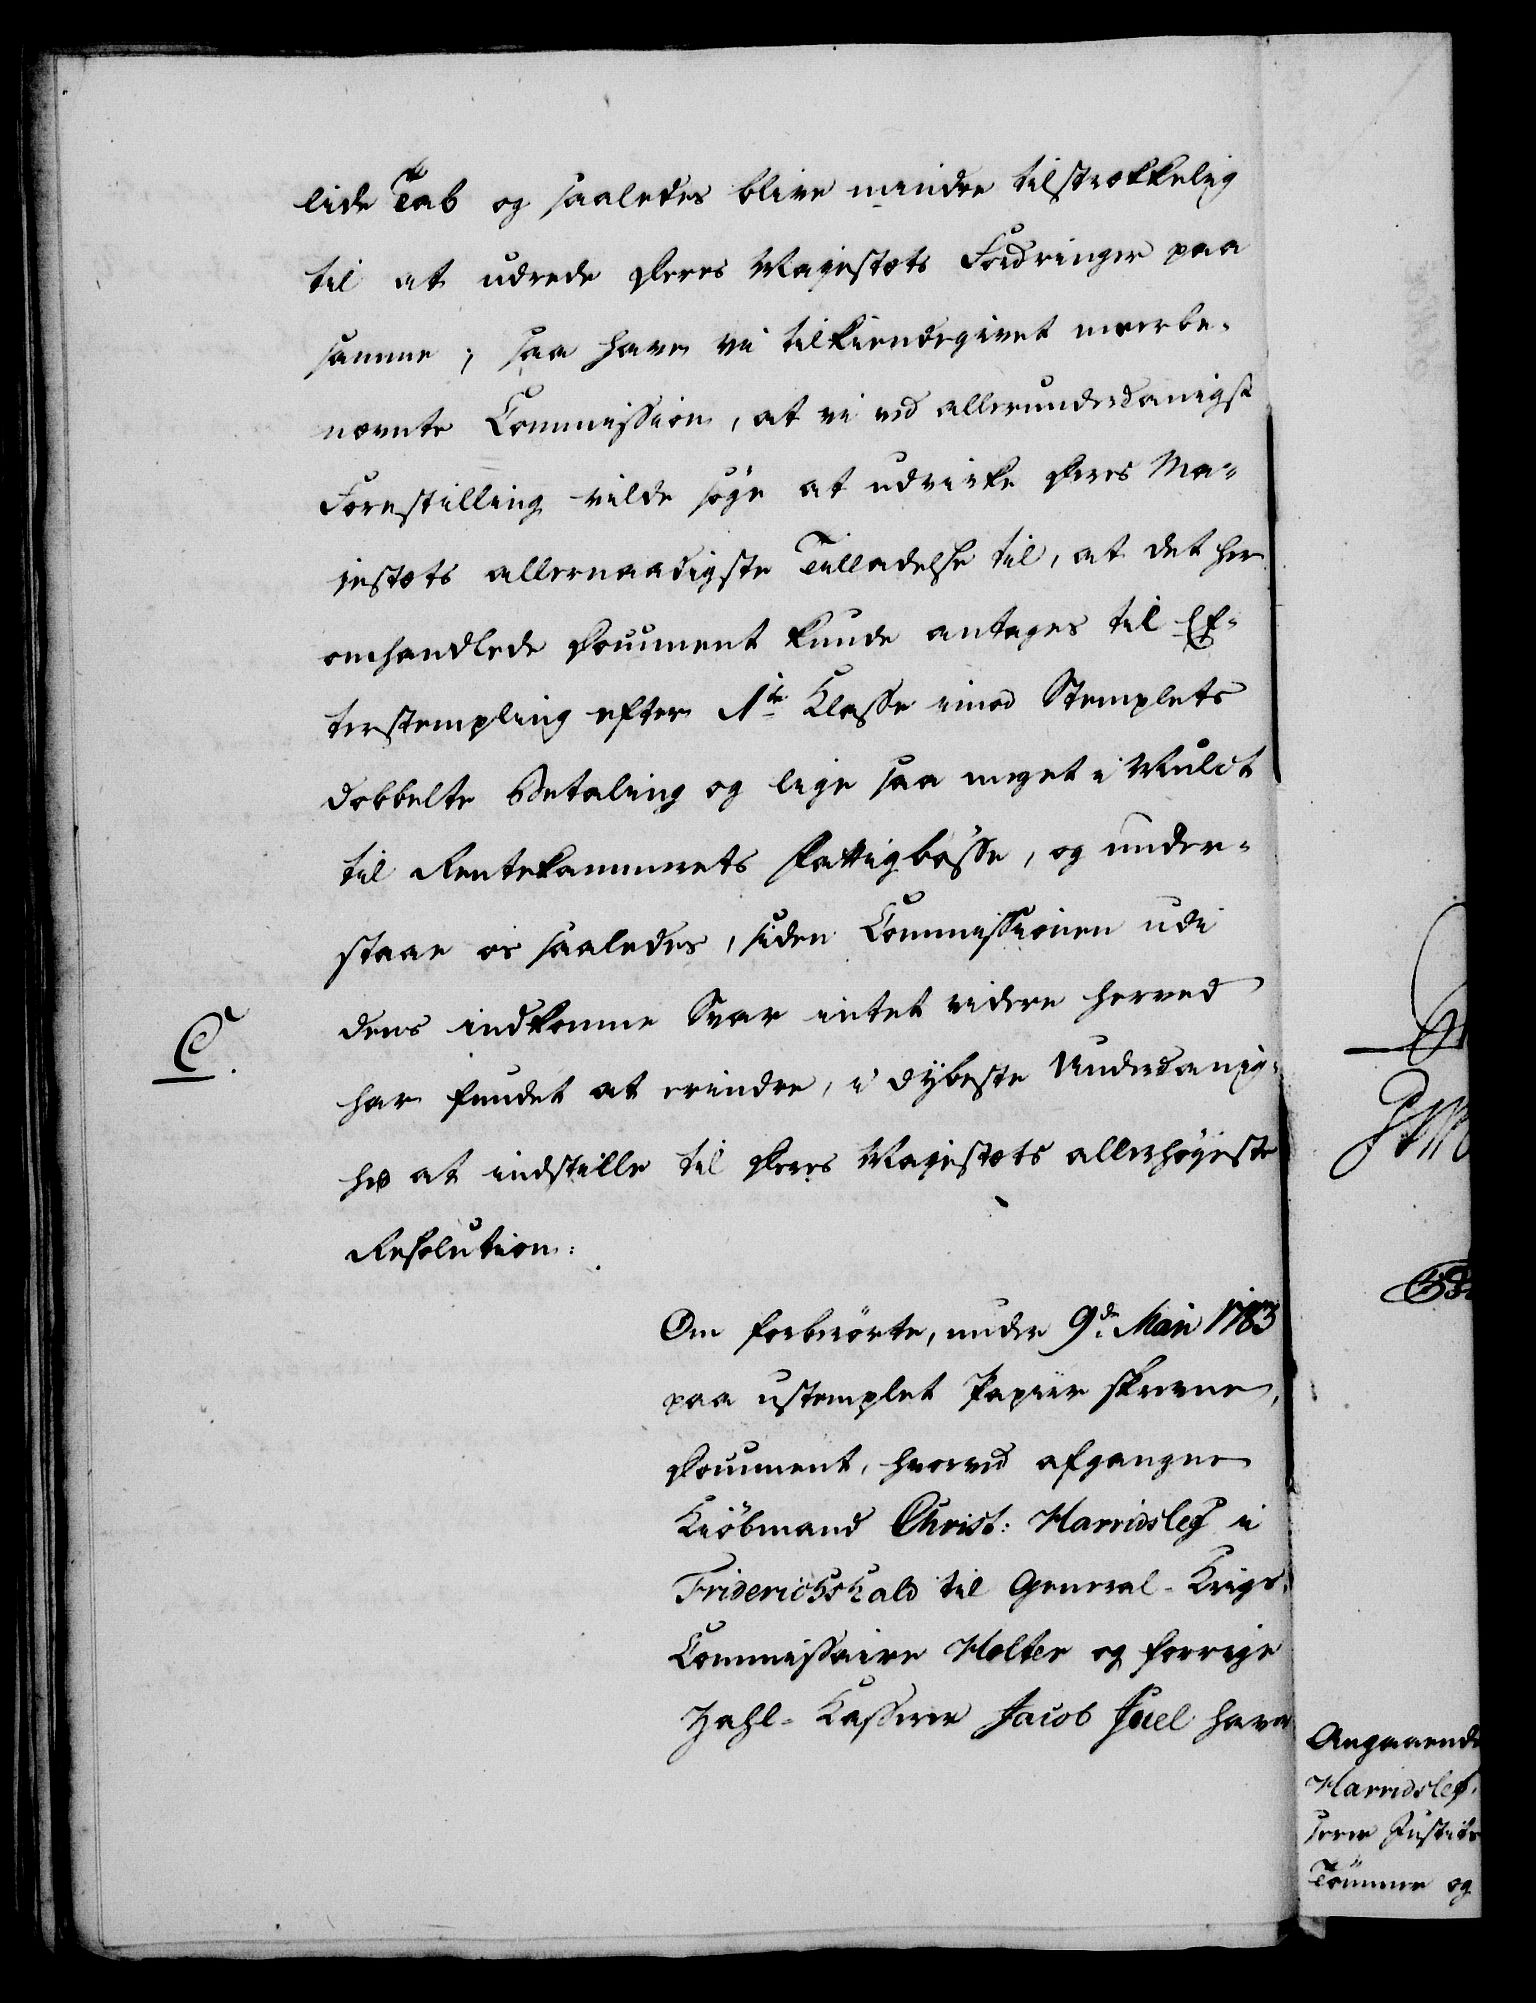 lide Tab og saaledes blive mindre tilstrækkelig
til at udrede Deres Majestæts Fordringer paa
samme; saa have vi tilkiendegivet meerbe-
nævnte Commission, at vi ved allerunderdanigst
Forestilling vilde søge at udvirke Deres Ma-
jestæts allernaadigste Tilladelse til, at det her
omhandlede Document kunde antages til Ef-
terstempling efter 1te Klasse imod Stemplets
dobbelte Betaling og lige saa meget i Mulct
til Rentekammerets Fattigbøsse, og under-
staae os saaledes, siden Commissionen udi
C.
dens indkomne Svar intet videre herved
har fundet at erindre, i dybeste Underdanig-
hed at indstille til Deres Majestæts allerhøyeste
Resolution:
Om forberørte, under 9de Maii 1783
paa ustemplet Papiir skrevne,
Document, hvorved afgangne
Kiöbmand Christ: Harridslef i
Friderichshald til General-Krigs-
Commissaire Holter og forrige
Zahl-Kasserer Jacob Juel have
Angaaende
Harridslef,
Tømmer og